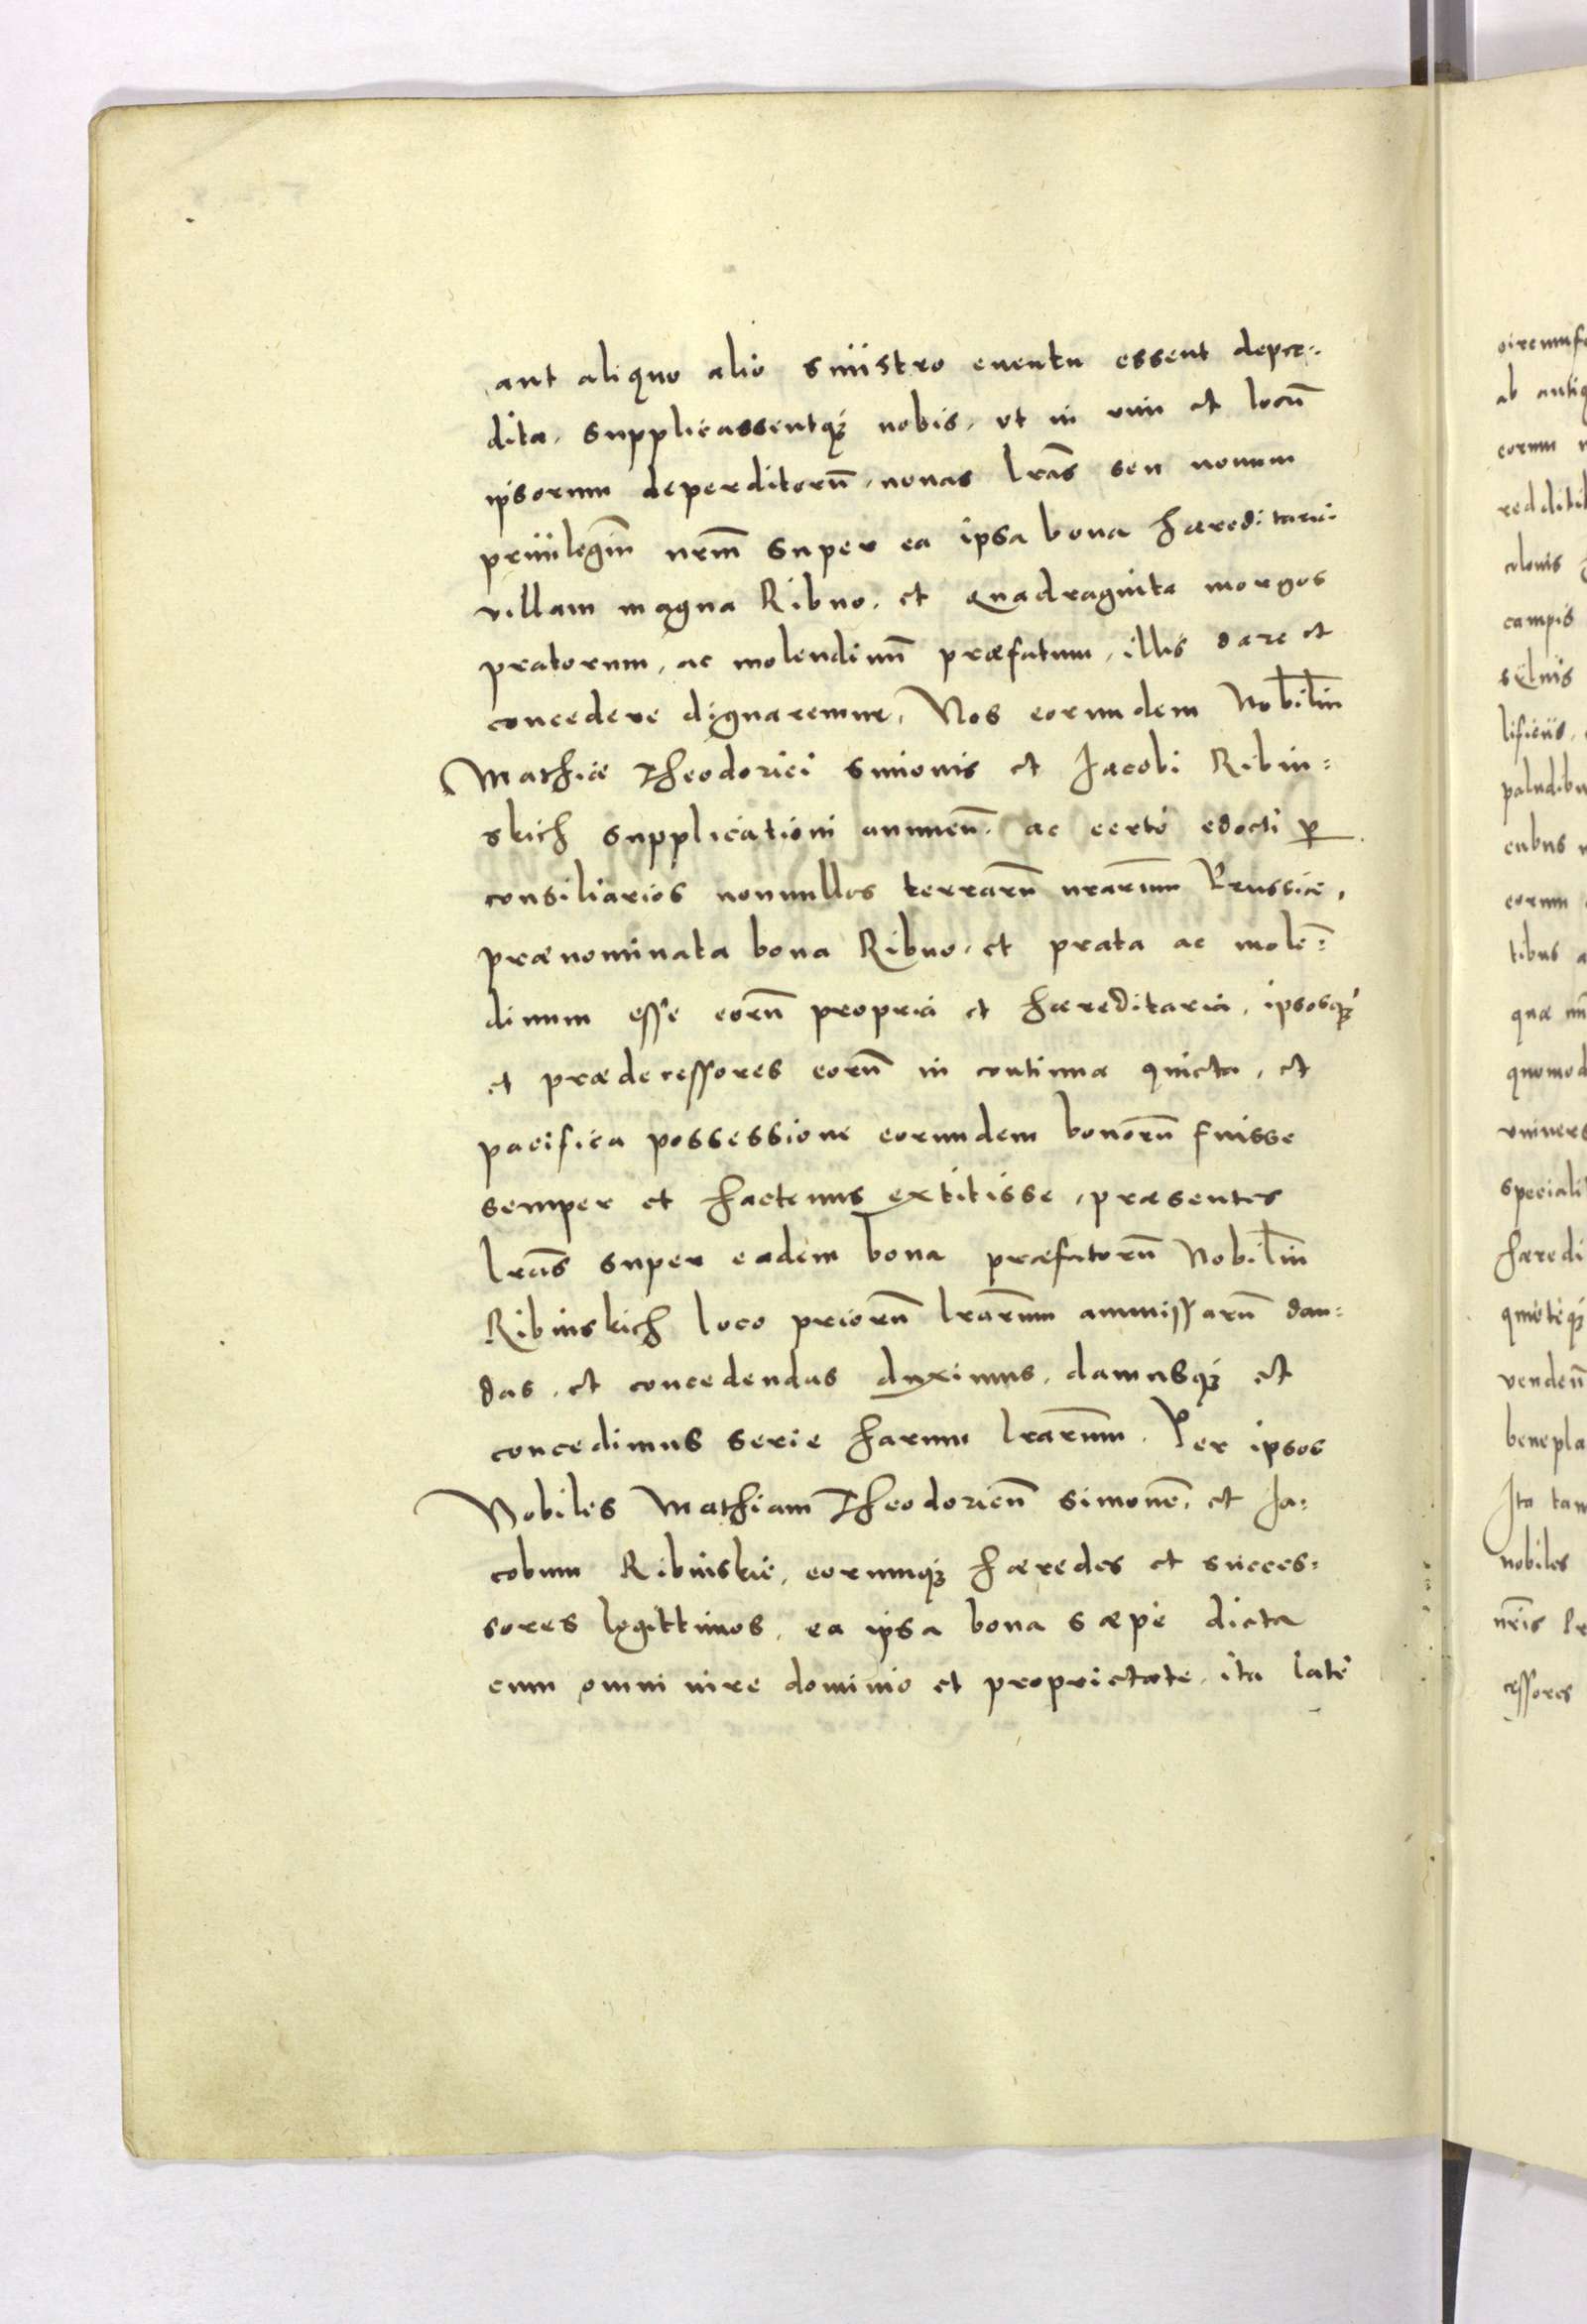 aut aliquo alio sinistro euentu essent deper-
dita, supplicassentq; nobis, vt in vim et locū
ipsorum deperditorū, nouas lras̄ seu nouum
priuilegiū nrm̄ super ea ipsa bona hæreditaria
villam magna Ribno, et quadraginta morgos
pratorum, ac molendinū præfatum, illis dare et
concedere dignaremur, Nos eorumdem Nobiliū
Mathiæ Theodorici Simonis et Jacobi Ribin=
skich supplicationi annuen̄. ac certò edocti p̱
consiliarios nonnullos terrarū nrarum̄ Prussiæ,
prænominata bona Ribno, et prata ac molē=
dinum esse eorū propria et hæreditaria, ipsosq;
et prædecessores eorū in continua quieta, et
pacifica possessione eorumdem bonorū fuisse
semper et hactenus extitisse, præsentes
lras̄ super eadem bona præfatorū Nobiliū
Ribinskich loco priorū lrarum̄ ammissarū dan=
das, et concedendas duximus, damusq; et
concedimus serie harum lrarum̄. Per ipsos
Nobiles Mathiam Theodoricū Simonē, et Ja=
cobum Ribinskie, eorumq; hæredes et succes=
sores legittimos, ea ipsa bona sæpe dicta
cum omni iure dominio et proprietate, ita latè
circumfe
ab antiq
eorum
redditib
colonis
campis
syluis
lificiis,
paludibu
cubus
eorum
tibus a
quæ
quomod
vniuers
speciali
hæredi
quieteq;
venden̄
benepla
Ita tam
nobiles
nris̄
cessores